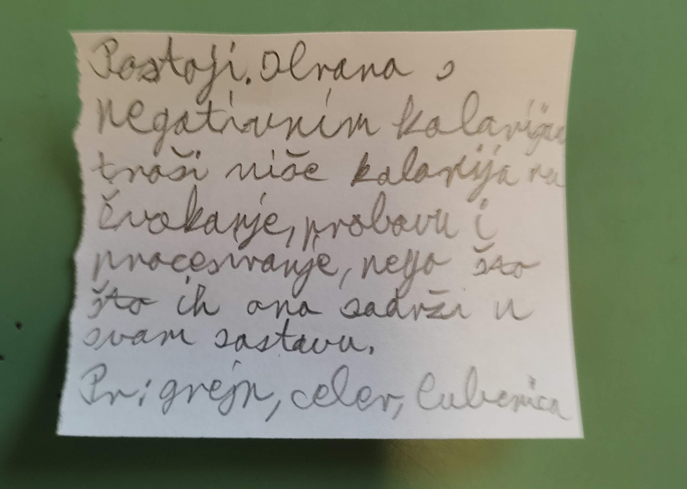 Postoji. Hrana s
negativnim kalorija
troši više kalorija na
žvakanje, probavu i
procesiranje, nego što
što ih ona sadrži u
svom sastavu.
Pr: grejp, celer, lubenica